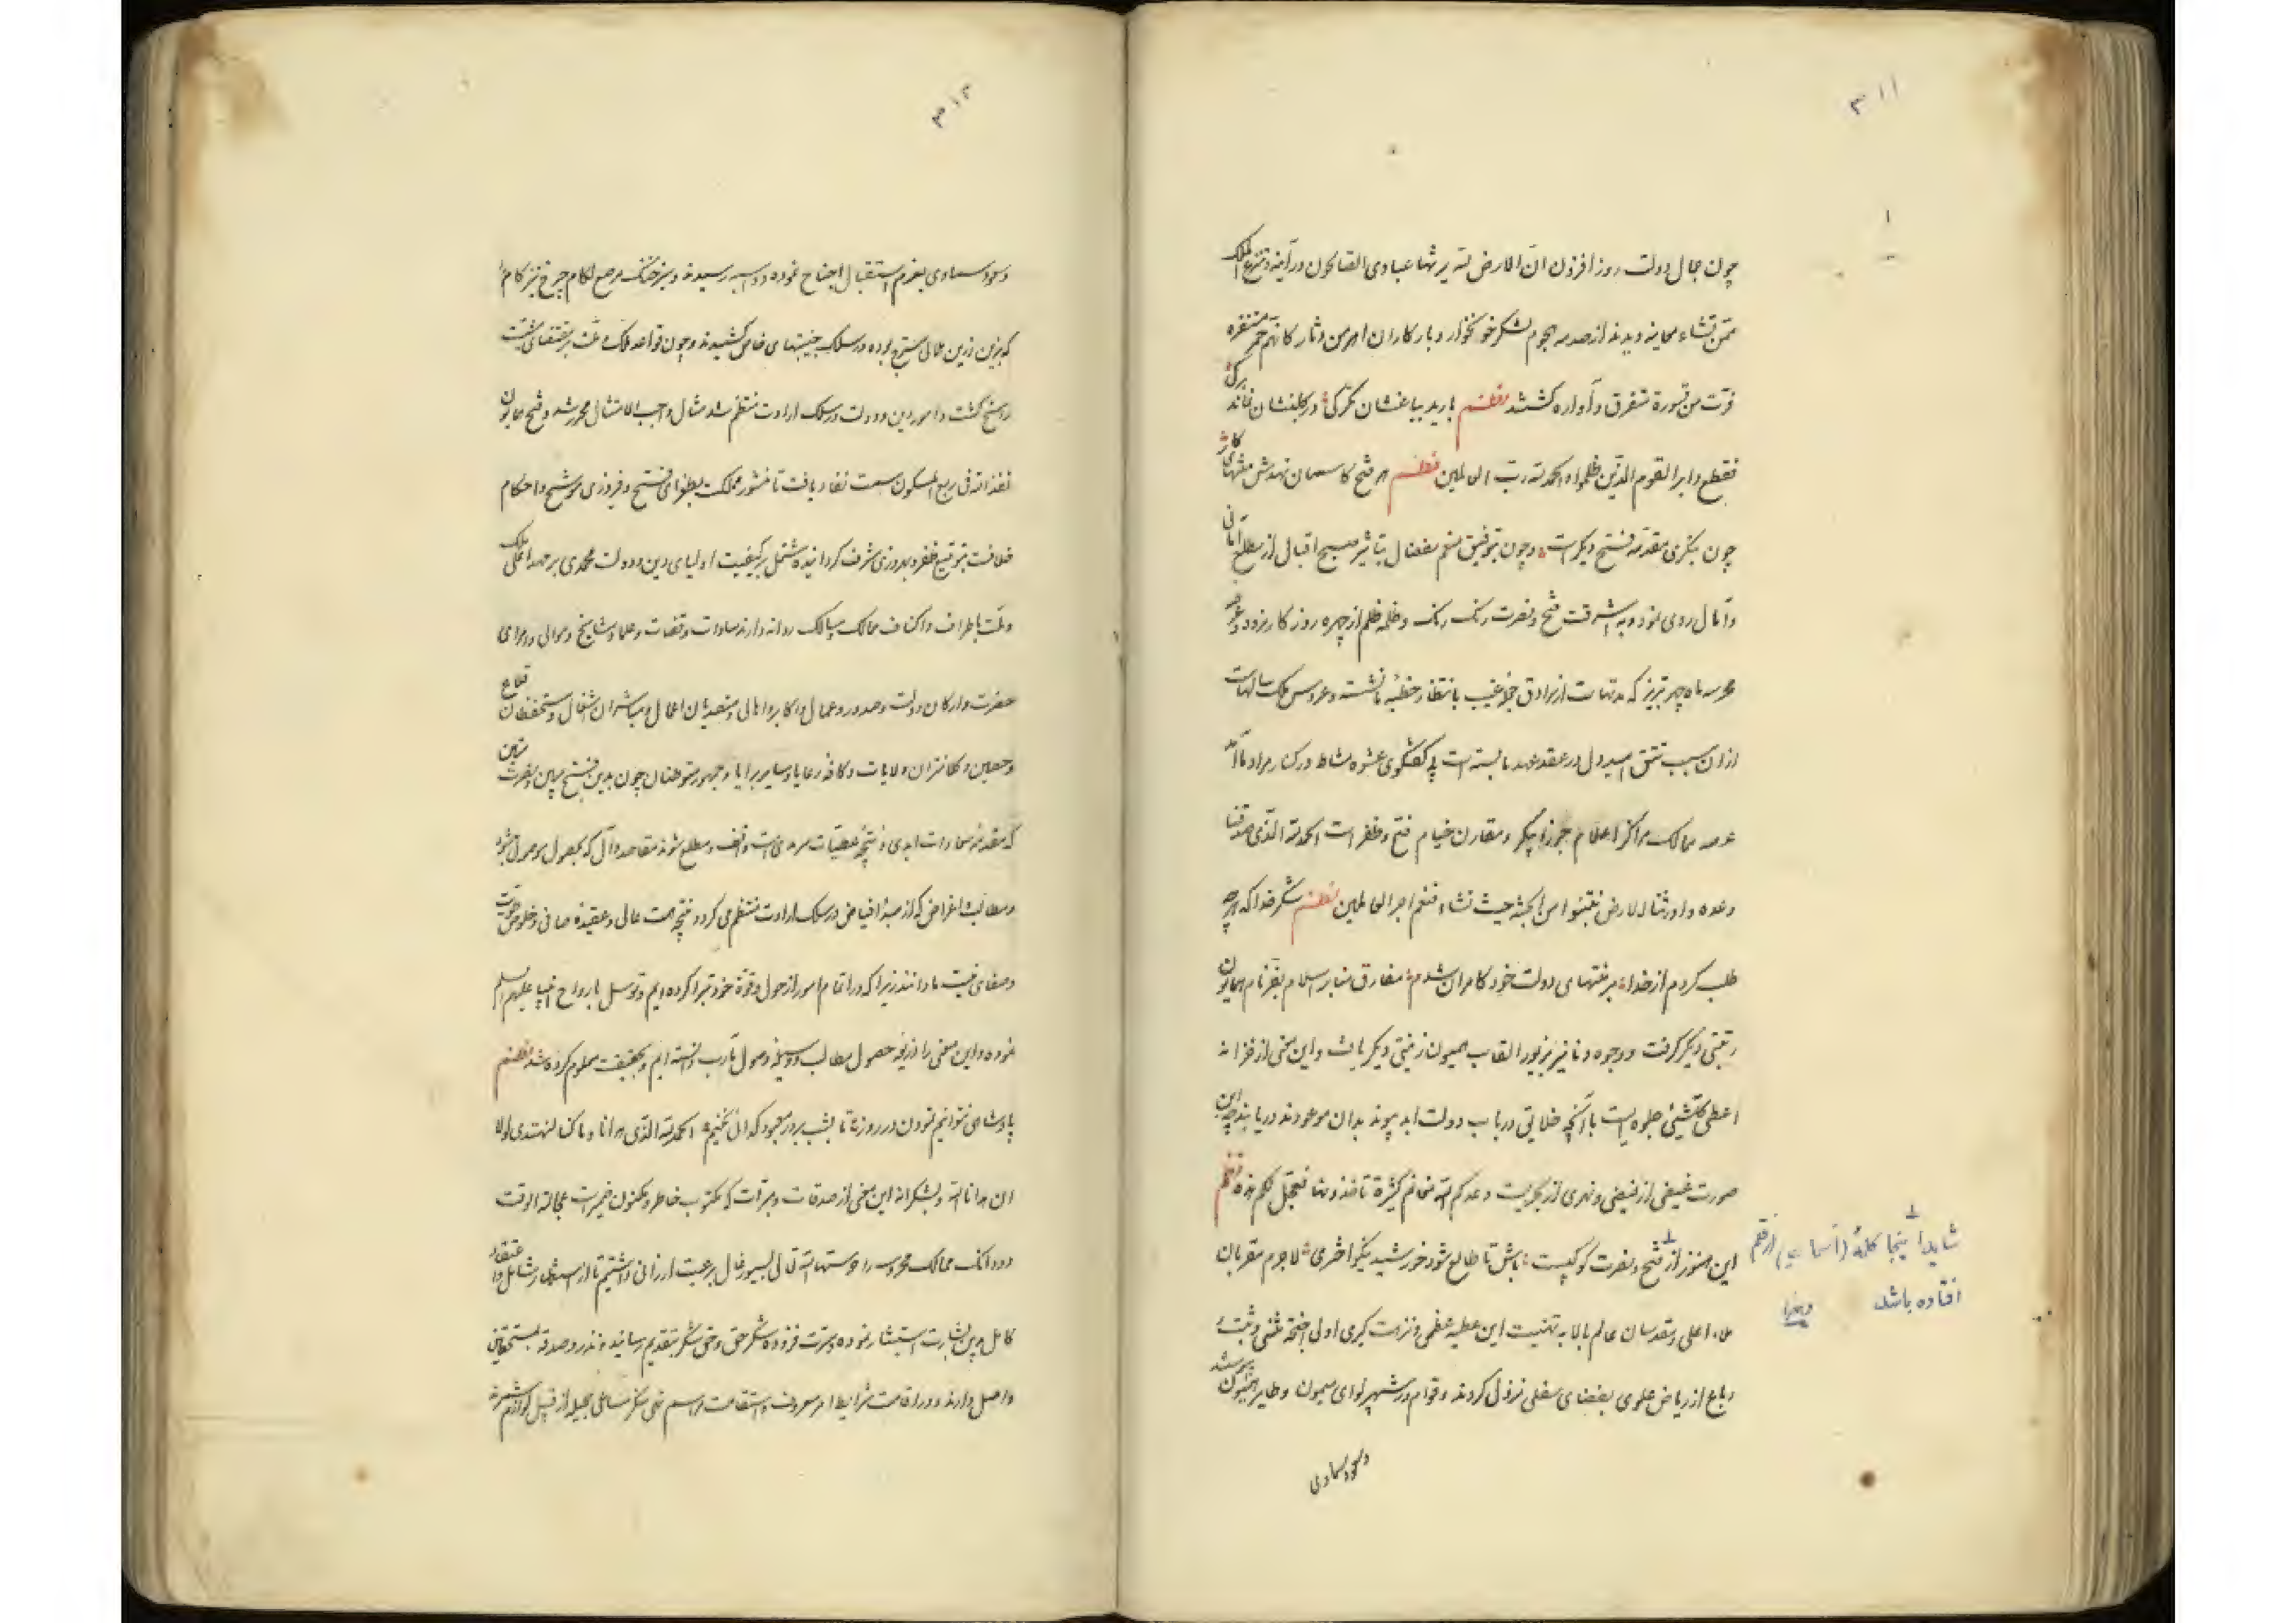 ۳۱۱
چون جمال دولت روز افزون ان الارض لله یرثها عبادی الصالحون در آینه و تنزع الملک
ممن تشاء معاینه دیدند از صدمه هجوم لشکر خونخوار و بار کاران اهرمن دثار کانهم حمر مستنفره
فرت من قسورة متفرق و آواره گشتند نظم بارید بباغشان تگرگی در گلبنشان نماند برگی
فقطع دابر القوم الذین ظلموا و الحمد لله رب العالمین نظم هر فتح کاسمان نهدش منتهای کار
چون بنگری مقدمه فتح دیگرست و چون بتوفیق منعم مفضال تباشیر صبح اقبال از مطلع امانی
و آمال روی نمود و به اشرقت فتح و نصرت زنگ رنگ و ظلمه ظلم از چهره روزگار بزدود
محروسه ماه چهر تبریز که مدتهاست از برادق غیب بانتظار خطبه ما نشسته و عروس ملک سالهاست
از آن سبب تتق امید دل در عقد عهد ما بسته است بی گفتگوی عشوه نشاط در کنار مراد ما آمد
عرصه ممالک مراکز اعلام جوزا پیکر و مقارن خیام فتح و ظفر است الحمد لله الذی صدقنا
وعده و اورثنا الارض نتبوا من الجنة حیث نشاء فنعم اجر العاملین نظم شکر خدا که هرچه
طلب کردم از خدا بر منتهای دولت خود کامران شدم مفارق منابر اسلام بفر نام همایون
رتبتی دیگر گرفت و وجوه دنانیر بزیور القاب همیون زینتی دیگر یافت و این معنی از خزانه
اعطی کل شیئ جلوه ایست با آنچه خلایق در باب دولت ابد پیوند بدان موعودند دریابند چه این
صورت غیضی از فیضی و نهری از بحریست وعدکم الله مغانم کثیرة تاخذونها فعجل لکم هذه نظم
این هنوز از فتح و نصرت کوکبیست باش تا طالع شود خورشید نیکو اختری لاجرم مقربان
ملاء اعلی و مقدسان عالم بالا به تهنیت این عطیه عظمی و نزهت کبری اولی اجنحة مثنی و ثلث و
رباع از ریاض علوی بفضای سفلی نزول کردند و قوادم در شهپر لوای میمون و طایر همیون پیوستند
وسعود سماوی
شاید اینجا کلمهٔ (آسمان) از قلم
افتاده باشد
۳۱۲
وسعود سماوی بعزم استقبال اجناح نموده دو اسبه رسیدند و سبز خنگ مرصع لگام چرخ تیز گام را
که بزین زرین هلالی مسرج بوده در سلک جنیبتهای خاص کشیدند و چون قواعد ملک و ملت بر مقتضای مشیت
راسخ گشت و امور دین و دولت در سلک ارادت منتظم شد مثال واجب الامتثال محرر شد و فتح همایون
نفذ الله فی ربع المسکون سمت نفاذ یافت تا منشور مملکت بطغرای فتح و فیروزی موشح و احکام
خلافت بتوقیع ظفر و بهروزی مشرف گردانیده مشتمل بر کیفیت اولیای دین و دولت محمدی بر جهد اعلی ملک
و ملت باطراف و اکناف ممالک و مسالک روانه دارند سادات و قضات و علما و مشایخ و موالی و امرای
حضرت و ارکان دولت و صدور و عمال و اکابر و اهالی و متصدیان اعمال و مباشران اشغال و مستحفظان قلاع
و حصین و کلانتران ولایات و کافه رعایا و سایر برایا و جمهور متوطنان چون بدین فتح مبین و نصرت متین
که مقدمه سعادات ابدی و نتیجه عطیات سرمدی است واقف و مطلع شوند مقاصد و آمال که بحصول موصول شود
و مطالب و اغراض که از مبدأ فیاض در سلک ارادت منتظم می گردد نتیجه همت عالی و عقیده صافی و خلوص طویت
و صفای نیت ما دانند زیرا که در اتمام امور از حول و قوة خود تبرا کرده ایم و توسل بارواح انبیا علیهم السلم
نموده و این معنی را ذریعه حصول مطالب و وسیله وصول مآرب دانسته ایم و بحقیقت معلوم کرده شد نظم
پادشاهی نتوانیم نمودن در روز تا بشب بر در معبود گدائی نکنیم الحمد لله الذی هدانا و ما کنا لنهتدی لولا
ان هدانا الله و بشکرانه این معنی از صدقات و مبرات که مکتوب خاطر و مکنون ضمیرست عجالة الوقت
دو دانگ ممالک محروسه را حرستها الله تعالی بسیورغال برعیت ارزانی داشتیم تا از استبشار شامل و اعتقاد
کامل بدین بشارت استبشار نموده و مسرت فزوده شکر حق و حق شکر بتقدیم رسانیده نذر و صدقه بمستحقان
واصل دارند و در اقامت شرایط امر معروف و استقامت مراسم نهی منکر مساعی جمیله از قبیل لوازم شمرند